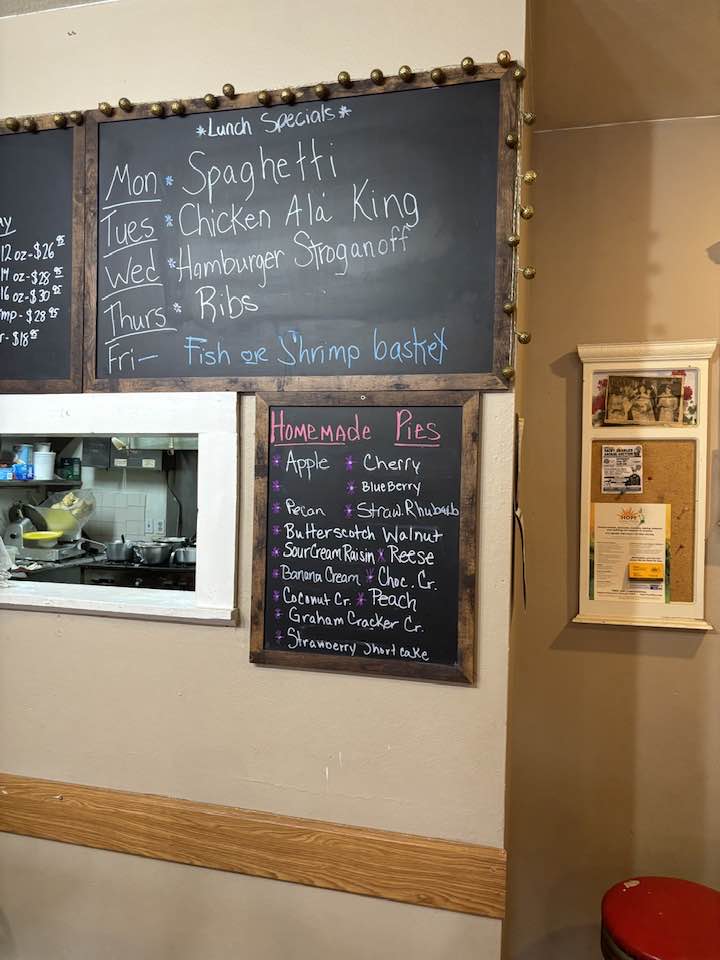 *Lunch Specials*
Mon * Spaghetti
Tues * Chicken Alá King
Wed * Hamburger Stroganoff
Thurs * Ribs
Fri — Fish or Shrimp basket
12 oz-$26 95
14 oz-$28 95
16 oz-$30 95
mp-$28 95
r-$18 95
Homemade Pies
* Apple * Cherry
* * BlueBerry
* Pecan * Straw. Rhubarb
* Butterscotch Walnut
* Sour Cream Raisin * Reese
* Banana Cream * Choc. Cr.
* Coconut Cr. * Peach
* Graham Cracker Cr.
* Strawberry Short cake
HOPE